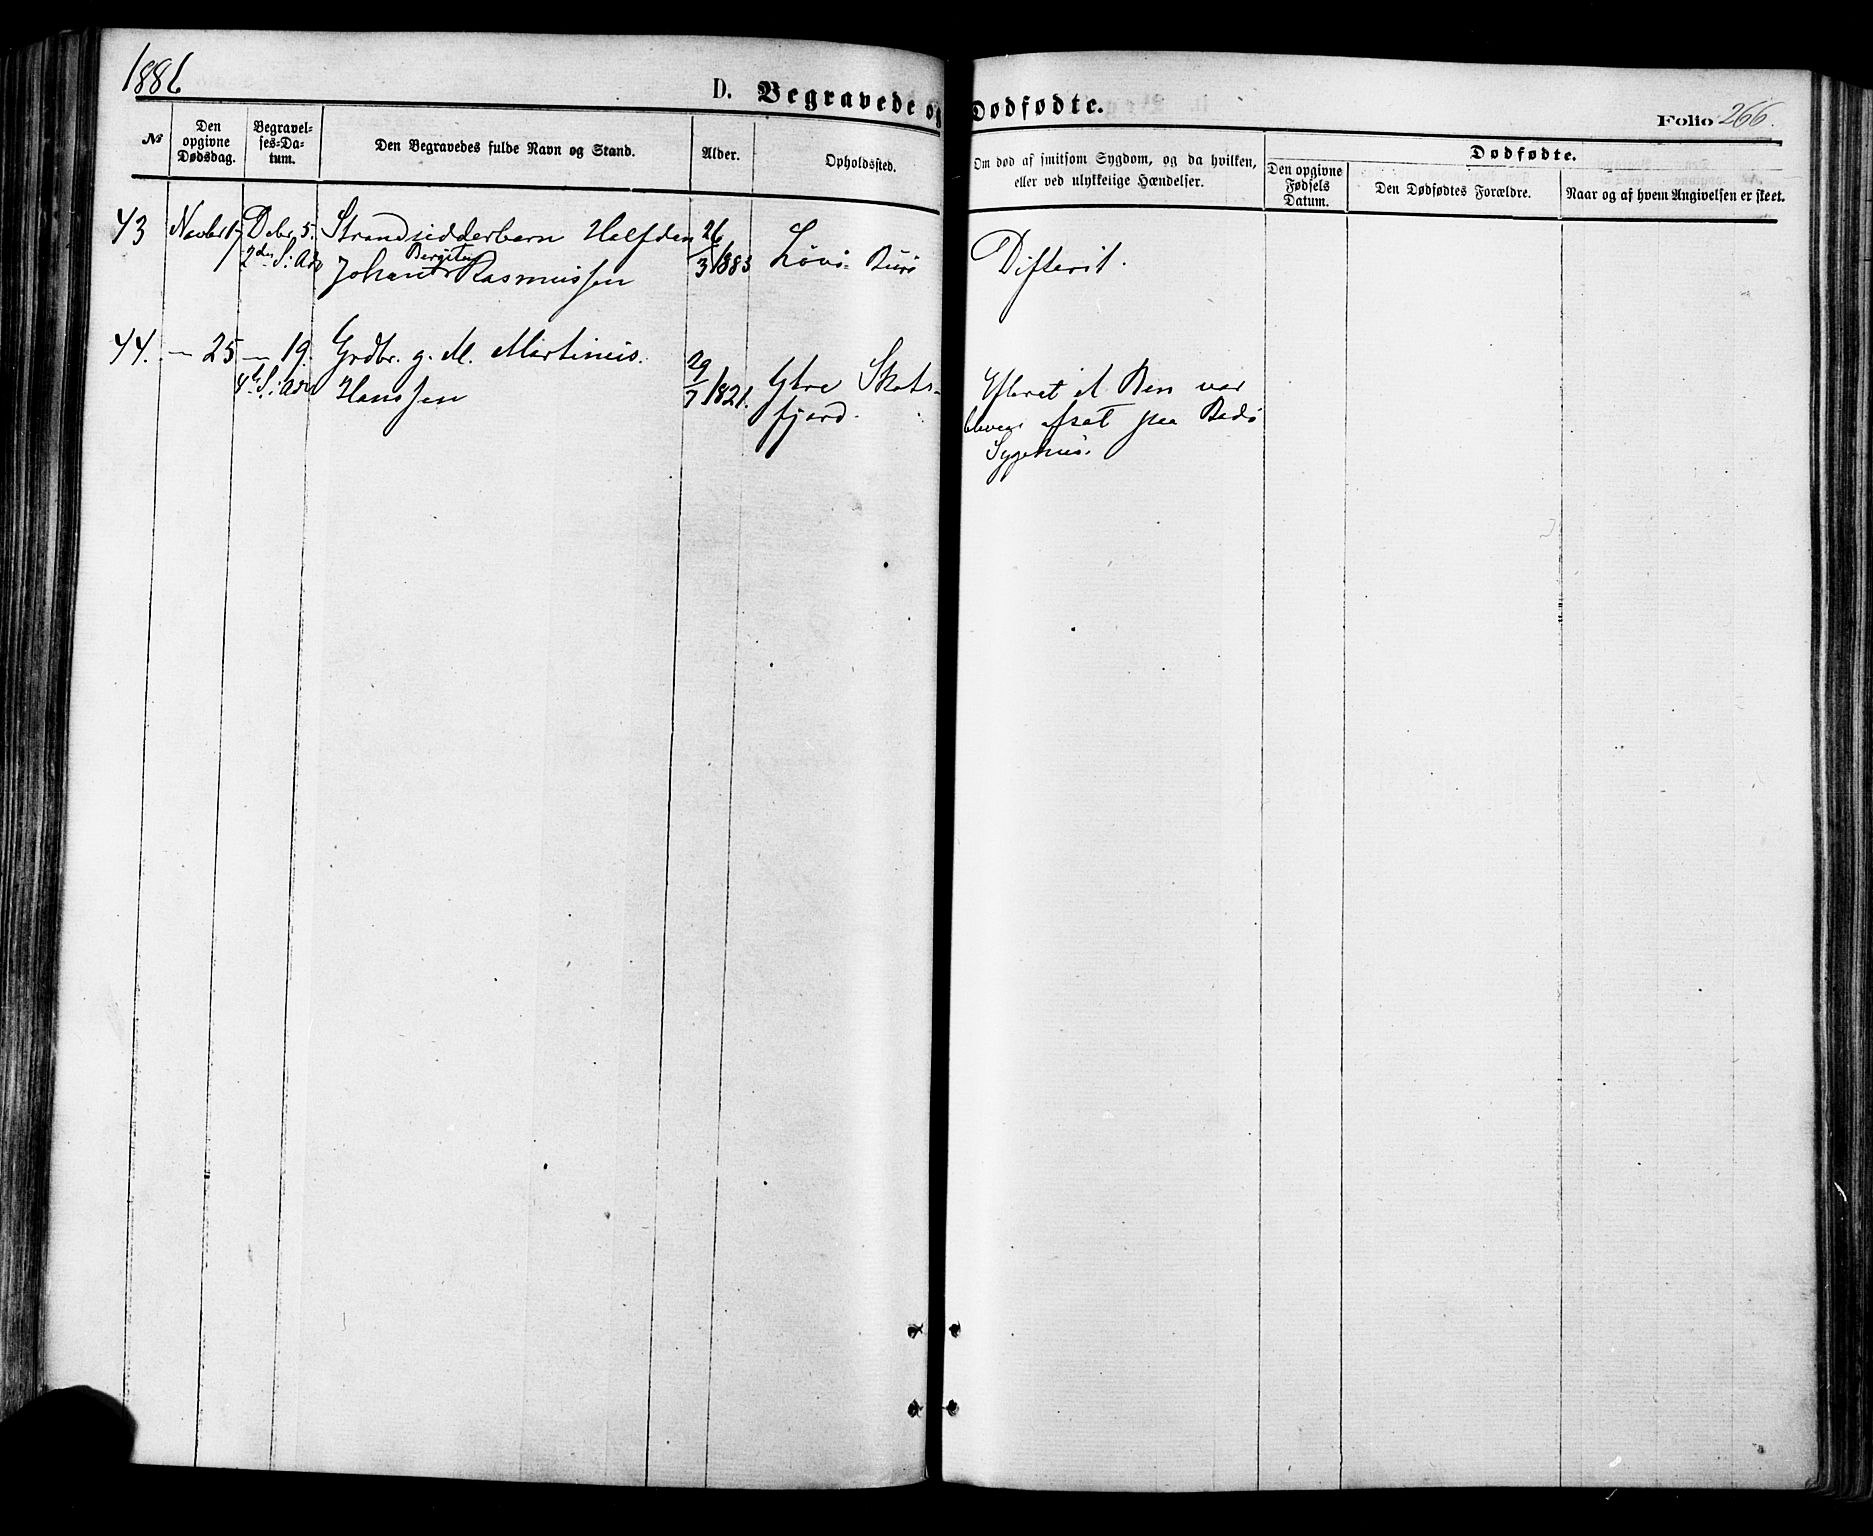 1886
D. Begravede og Dødfødte.
Folio 266.
№
Den opgivne Dødsdag.
Begravelses-Datum.
Den Begravedes fulde Navn og Stand.
Alder.
Opholdssted.
Om død af smitsom Sygdom, og da hvilken, eller ved ulykkelige Hændelser.
Dødfødte.
Den opgivne Fødsels Datum.
Den Dødfødtes Forældre.
Naar og af hvem Angivelsen er skeet.
43 Novbr 17 Debr. 5. Strandsidderbarn Halfdan 26/3 1883 Løvö Burö Difterit.
2den S. i Adv
Bergiton
Johan Rasmussen
44. — 25 — 19. Grdbr. g. M. Martinus 29/7 1821. Ytre Skots-
4de S. i Adv Hanssen fjord.
Efterat et Ben var
bleven afsat paa Bodö
Sygehus.